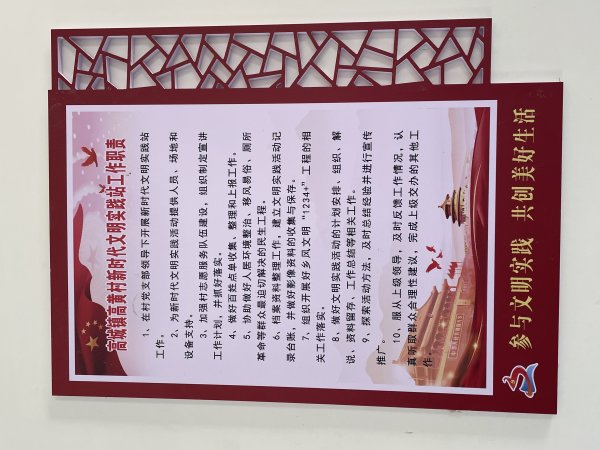 高城镇高黄村新时代文明实践站工作职责
1、在村党支部领导下开展新时代文明实践站
工作。
2、为新时代文明实践活动提供人员、场地和
设备支持。
3、加强村志愿服务队伍建设，组织制定宣讲
工作计划，并抓好落实。
4、做好百姓点单收集、整理和上报工作。
5、协助做好人居环境整治、移风易俗、厕所
革命等群众最迫切解决的民生工程。
6、档案资料整理工作，建立文明实践活动记
录台账，并做好影像资料的收集与保存。
7、组织开展好乡风文明“1234+”工程的相
关工作落实。
8、做好文明实践活动的计划安排、组织、解
说、资料留存、工作总结等相关工作。
9、探索活动方法，及时总结经验并进行宣传
推广。
10、服从上级领导，及时反馈工作情况，认
真听取群众合理性建议，完成上级交办的其他工
作。
参与文明实践 共创美好生活